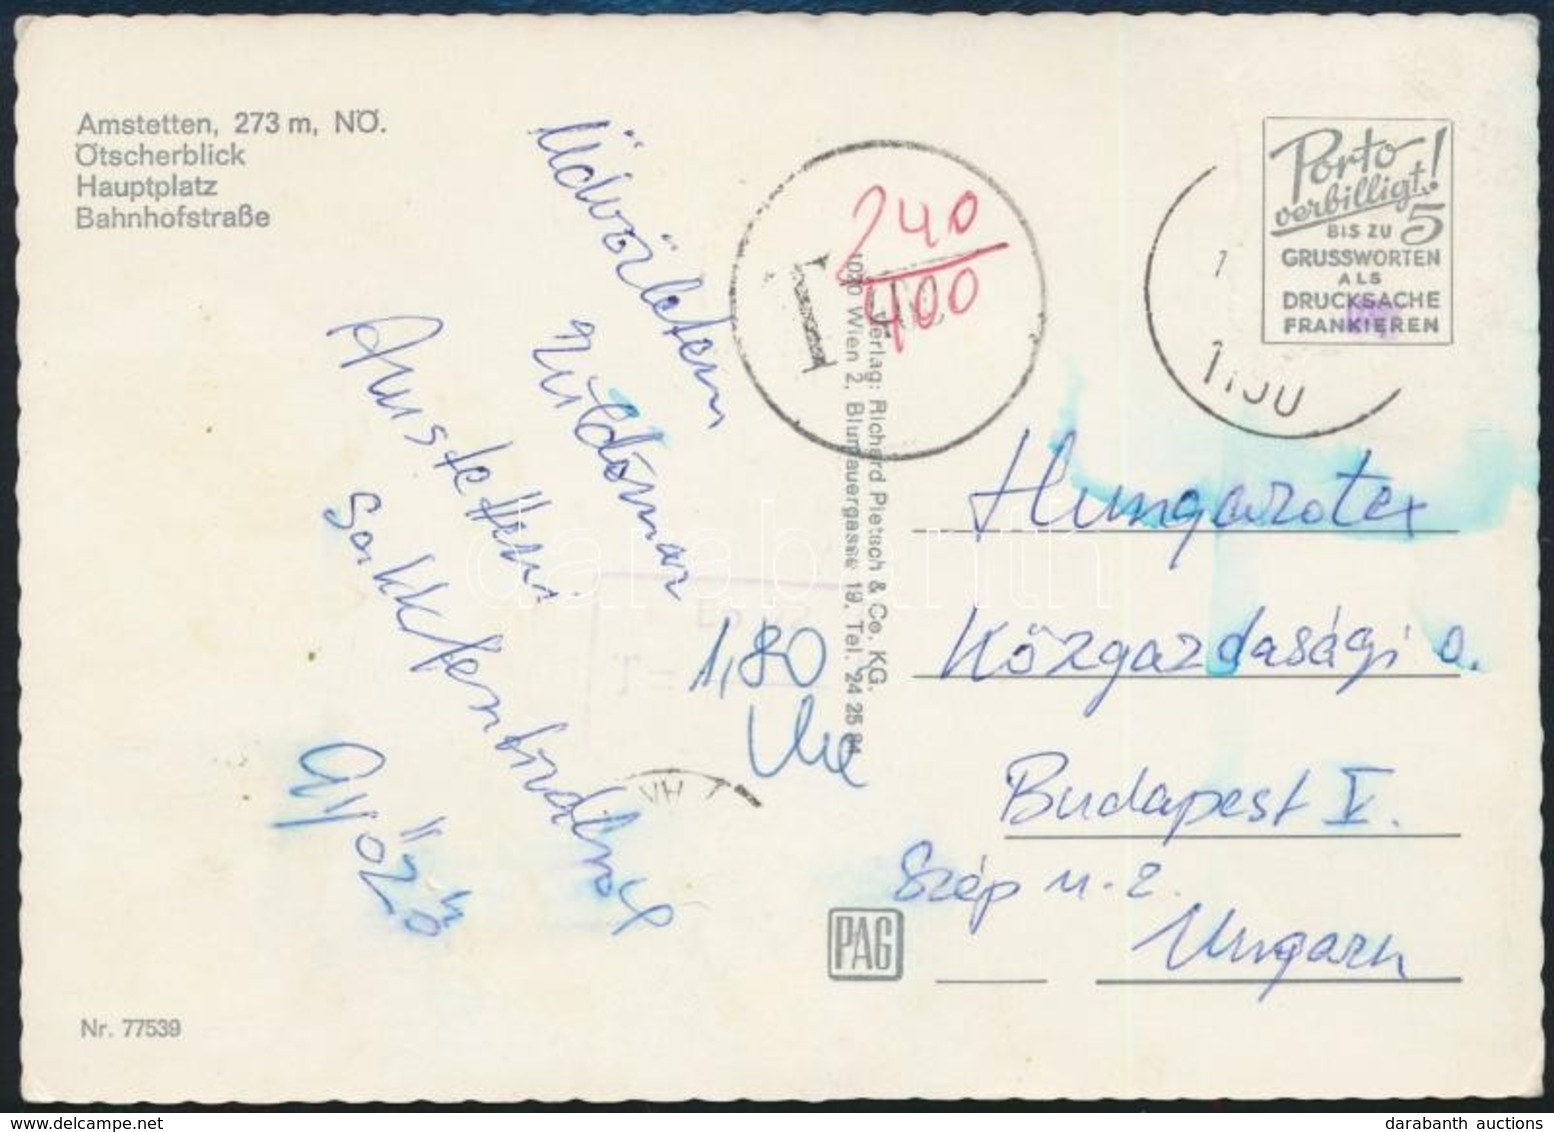 Amstetten, 273 m, NÖ.
Ötscherblick
Hauptplatz
Bahnhofstraße
Üdvözletem
küldöm az
Amstetteni
Sakktenb
Győző
1,80
240
400
T
Verlag: Richard Pietsch & Co. KG.
1020 Wien 2, Blumauergasse 19, Tel. 24 25 84
Porto
verbilligt!
BIS ZU 5
GRUSSWORTEN
ALS
DRUCKSACHE
FRANKIEREN
Hungarotex
Közgazdasági o.
Budapest V.
Szép u. 2.
Ungarn
PAG
Nr. 77539
T =
darabanth
darabanth auctions